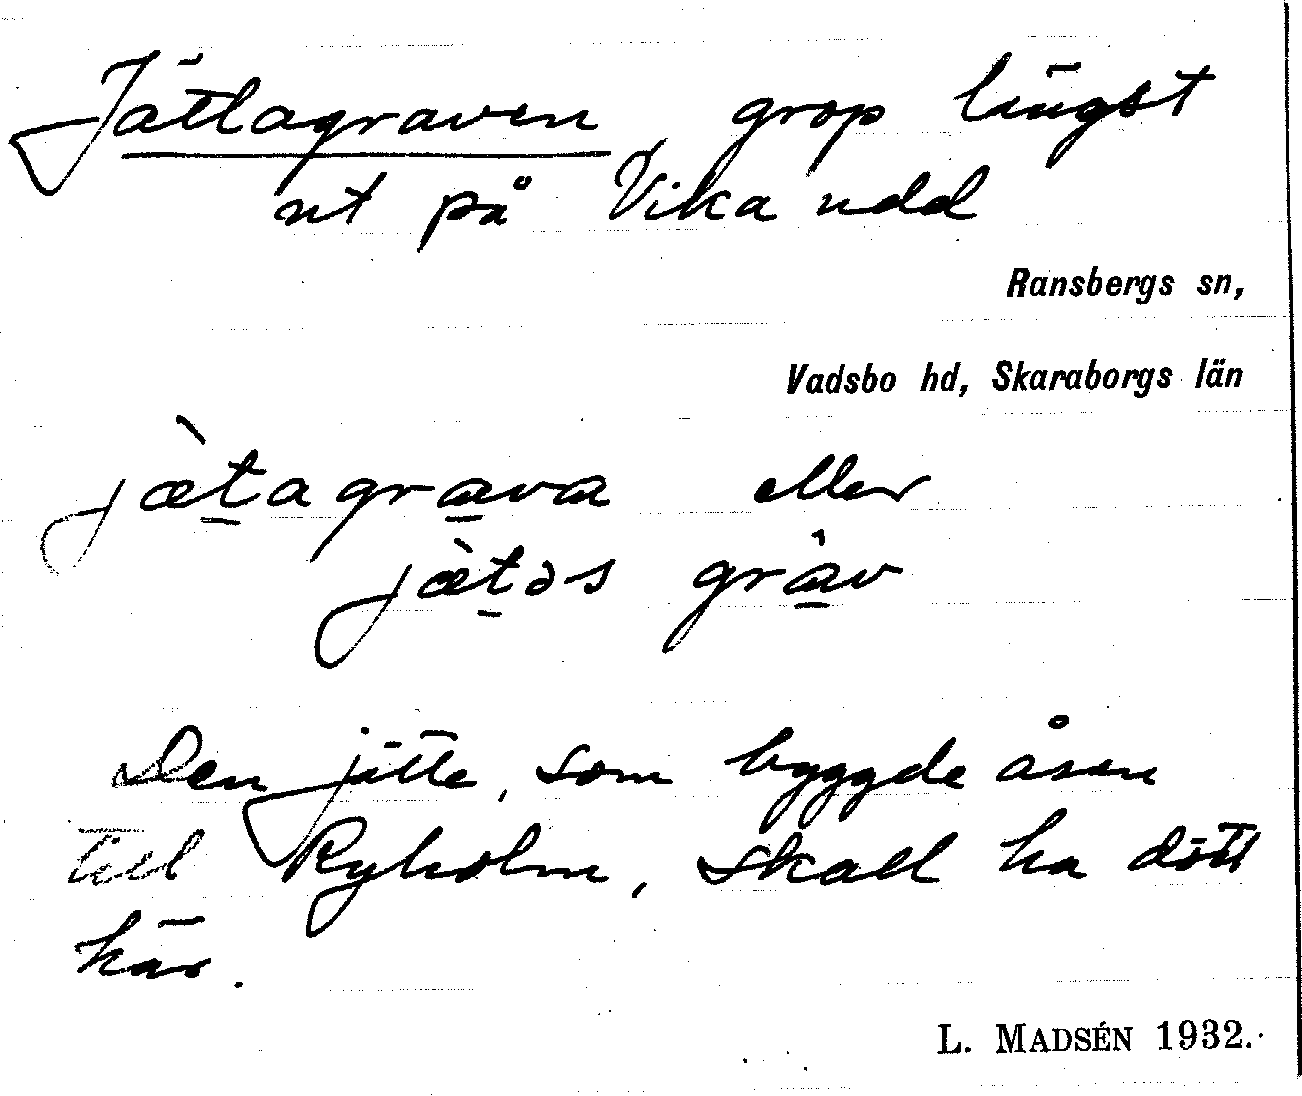 Jättagraven, grop längst
ut på Vika udd
Ransbergs sn,
Vadsbo hd, Skaraborgs län
jæ̀ta grava eller
jæ̀təs gràv
Den jätte, som byggde åsen
till Ryholm, skall ha dött
här.
L. MADSÉN 1932.